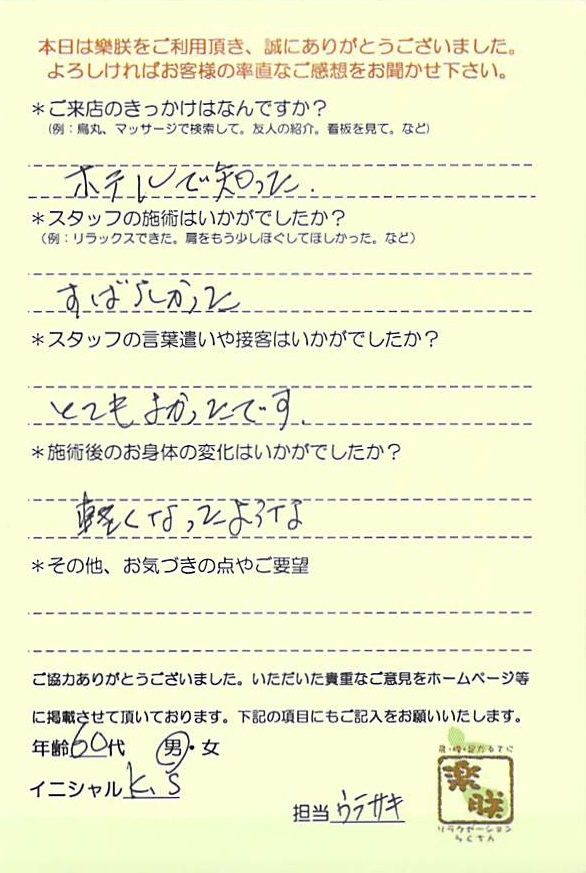 本日は樂朕をご利用頂き、誠にありがとうございました。
よろしければお客様の率直なご感想をお聞かせ下さい。
＊ご来店のきっかけはなんですか？
（例：烏丸、マッサージで検索して。友人の紹介。看板を見て。など）
ホテルで知った.
＊スタッフの施術はいかがでしたか？
（例：リラックスできた。肩をもう少しほぐしてほしかった。など）
すばらしかった
＊スタッフの言葉遣いや接客はいかがでしたか？
とてもよかったです.
＊施術後のお身体の変化はいかがでしたか？
軽くなったような
＊その他、お気づきの点やご要望
ご協力ありがとうございました。いただいた貴重なご意見をホームページ等
に掲載させて頂いております。下記の項目にもご記入をお願いいたします。
年齢60代 男・女
イニシャル K.S
担当 ウラサキ
楽朕
リラクゼーション
らくちん